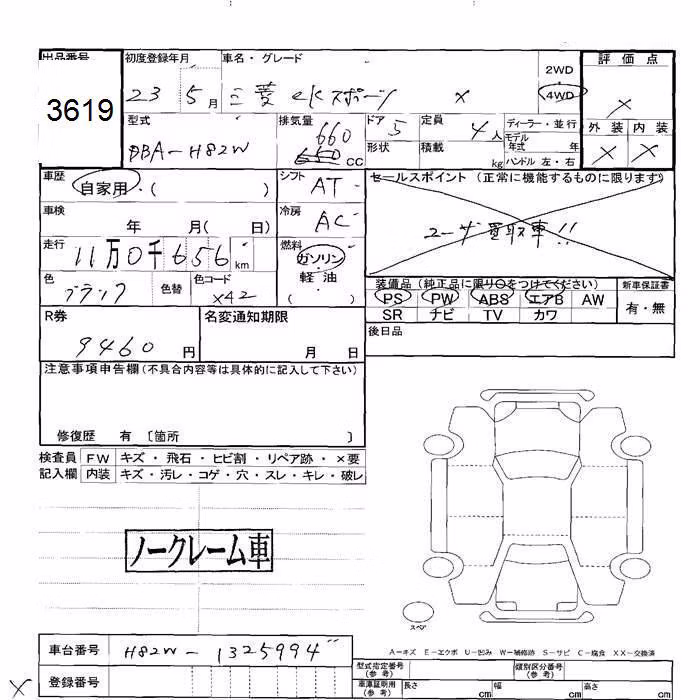 出品番号 初度登録年月 車名・グレード 評価点
3619 23 5月 三菱 ekスポーツ × 2WD 4WD ×
型式 排気量 ドア 5 定員 4人 ディーラー・並行 外装 内装
DBA-H82W 660 cc 形状 積載 kg モデル年式 年 ハンドル 左・右 × ×
車歴 自家用・( ) シフト AT セールスポイント (正常に機能するものに限ります)
車検 年 月( 日) 冷房 AC ユーザー買取車!!
走行 11万0千656km 燃料 ガソリン・軽油・( )
色 ブラック 色替 色コード X42 装備品(純正品に限り○をつけてください) 新車保証書
PS PW ABS エアB AW 有・無
SR チビ TV カワ
R券 9460円 名変通知期限 月 日 後日品
注意事項申告欄(不具合内容等は具体的に記入して下さい)
修復歴 有 〔箇所 〕
検査員 FW キズ・飛石・ヒビ割・リペア跡・×要
記入欄 内装 キズ・汚レ・コゲ・穴・スレ・キレ・破レ
ノークレーム車
スペア
A-キズ E-エクボ U-凹み W-補修跡 S-サビ C-腐食 XX-交換済
車台番号 H82W-1325994 型式指定番号(参考) 類別区分番号(参考)
× 登録番号 車庫証明用(参考) 長さ cm 幅 cm 高さ cm